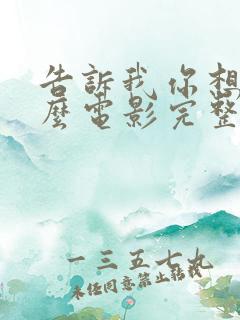 告訴我你想
麼電影完整
一三五七九
未經同意禁止轉載